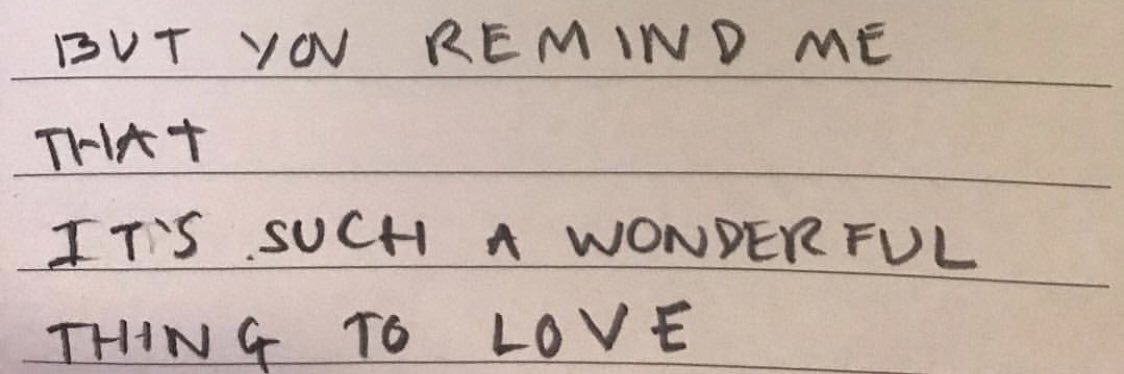 BUT YOU REMIND ME
THAT
IT'S SUCH A WONDERFUL
THING TO LOVE